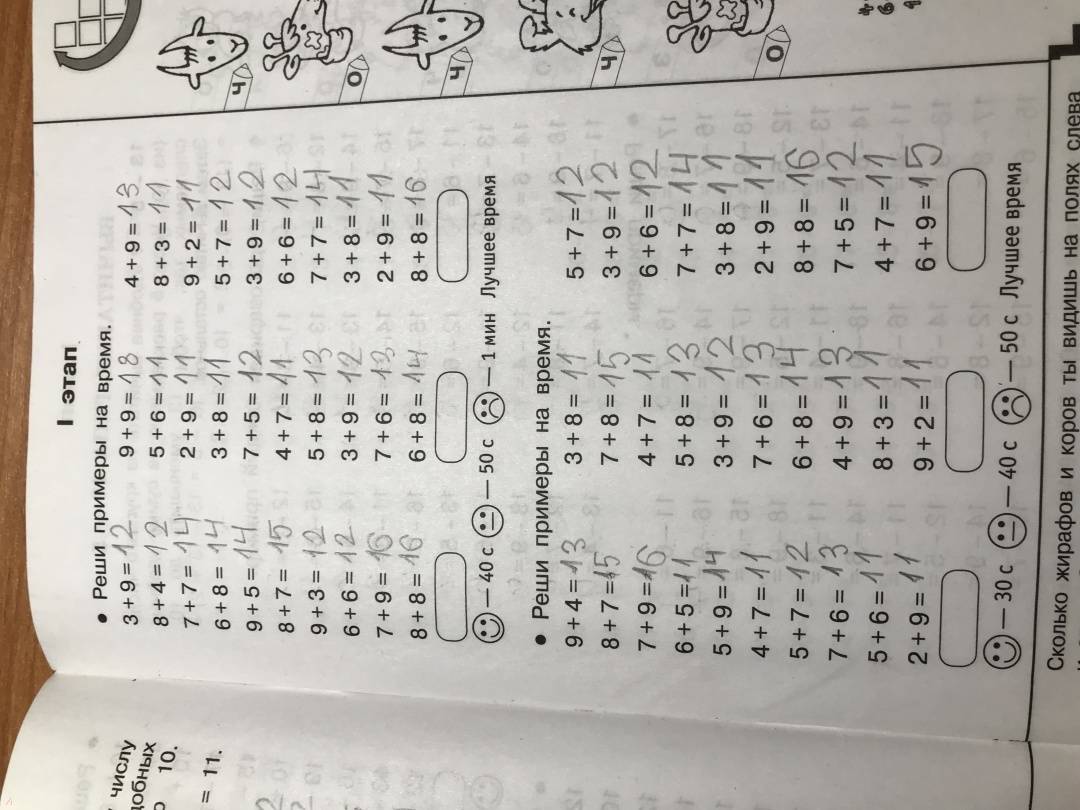 I этап
• Реши примеры на время.
3 + 9 = 12 9 + 9 = 18 4 + 9 = 13
8 + 4 = 12 5 + 6 = 11 8 + 3 = 11
7 + 7 = 14 2 + 9 = 11 9 + 2 = 11
6 + 8 = 14 3 + 8 = 11 5 + 7 = 12
9 + 5 = 14 7 + 5 = 12 3 + 9 = 12
8 + 7 = 15 4 + 7 = 11 6 + 6 = 12
9 + 3 = 12 5 + 8 = 13 7 + 7 = 14
6 + 6 = 12 3 + 9 = 12 3 + 8 = 11
7 + 9 = 16 7 + 6 = 13 2 + 9 = 11
8 + 8 = 16 6 + 8 = 14 8 + 8 = 16
— 40 с — 50 с — 1 мин Лучшее время
• Реши примеры на время.
9 + 4 = 13 3 + 8 = 11 5 + 7 = 12
8 + 7 = 15 7 + 8 = 15 3 + 9 = 12
7 + 9 = 16 4 + 7 = 11 6 + 6 = 12
6 + 5 = 11 5 + 8 = 13 7 + 7 = 14
5 + 9 = 14 3 + 9 = 12 3 + 8 = 11
4 + 7 = 11 7 + 6 = 13 2 + 9 = 11
5 + 7 = 12 6 + 8 = 14 8 + 8 = 16
7 + 6 = 13 4 + 9 = 13 7 + 5 = 12
5 + 6 = 11 8 + 3 = 11 4 + 7 = 11
2 + 9 = 11 9 + 2 = 11 6 + 9 = 15
— 30 с — 40 с — 50 с Лучшее время
Сколько жирафов и коров ты видишь на полях слева
Ч
О
Ч
Ч
О
числу
добных
10.
= 11.